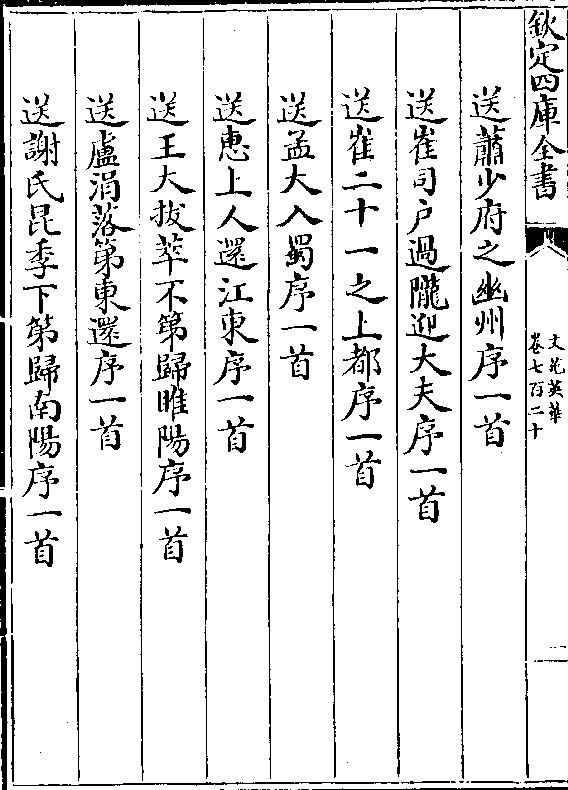 欽定四庫全書
文苑英華
卷七百二十
一
送蕭少府之幽州序一首
送崔司户過隴迎大夫序一首
送崔二十一之上都序一首
送孟大入蜀序一首
送惠上人還江東序一首
送王大拔萃不第歸睢陽序一首
送盧涓落第東還序一首
送謝氏昆季下第歸南陽序一首